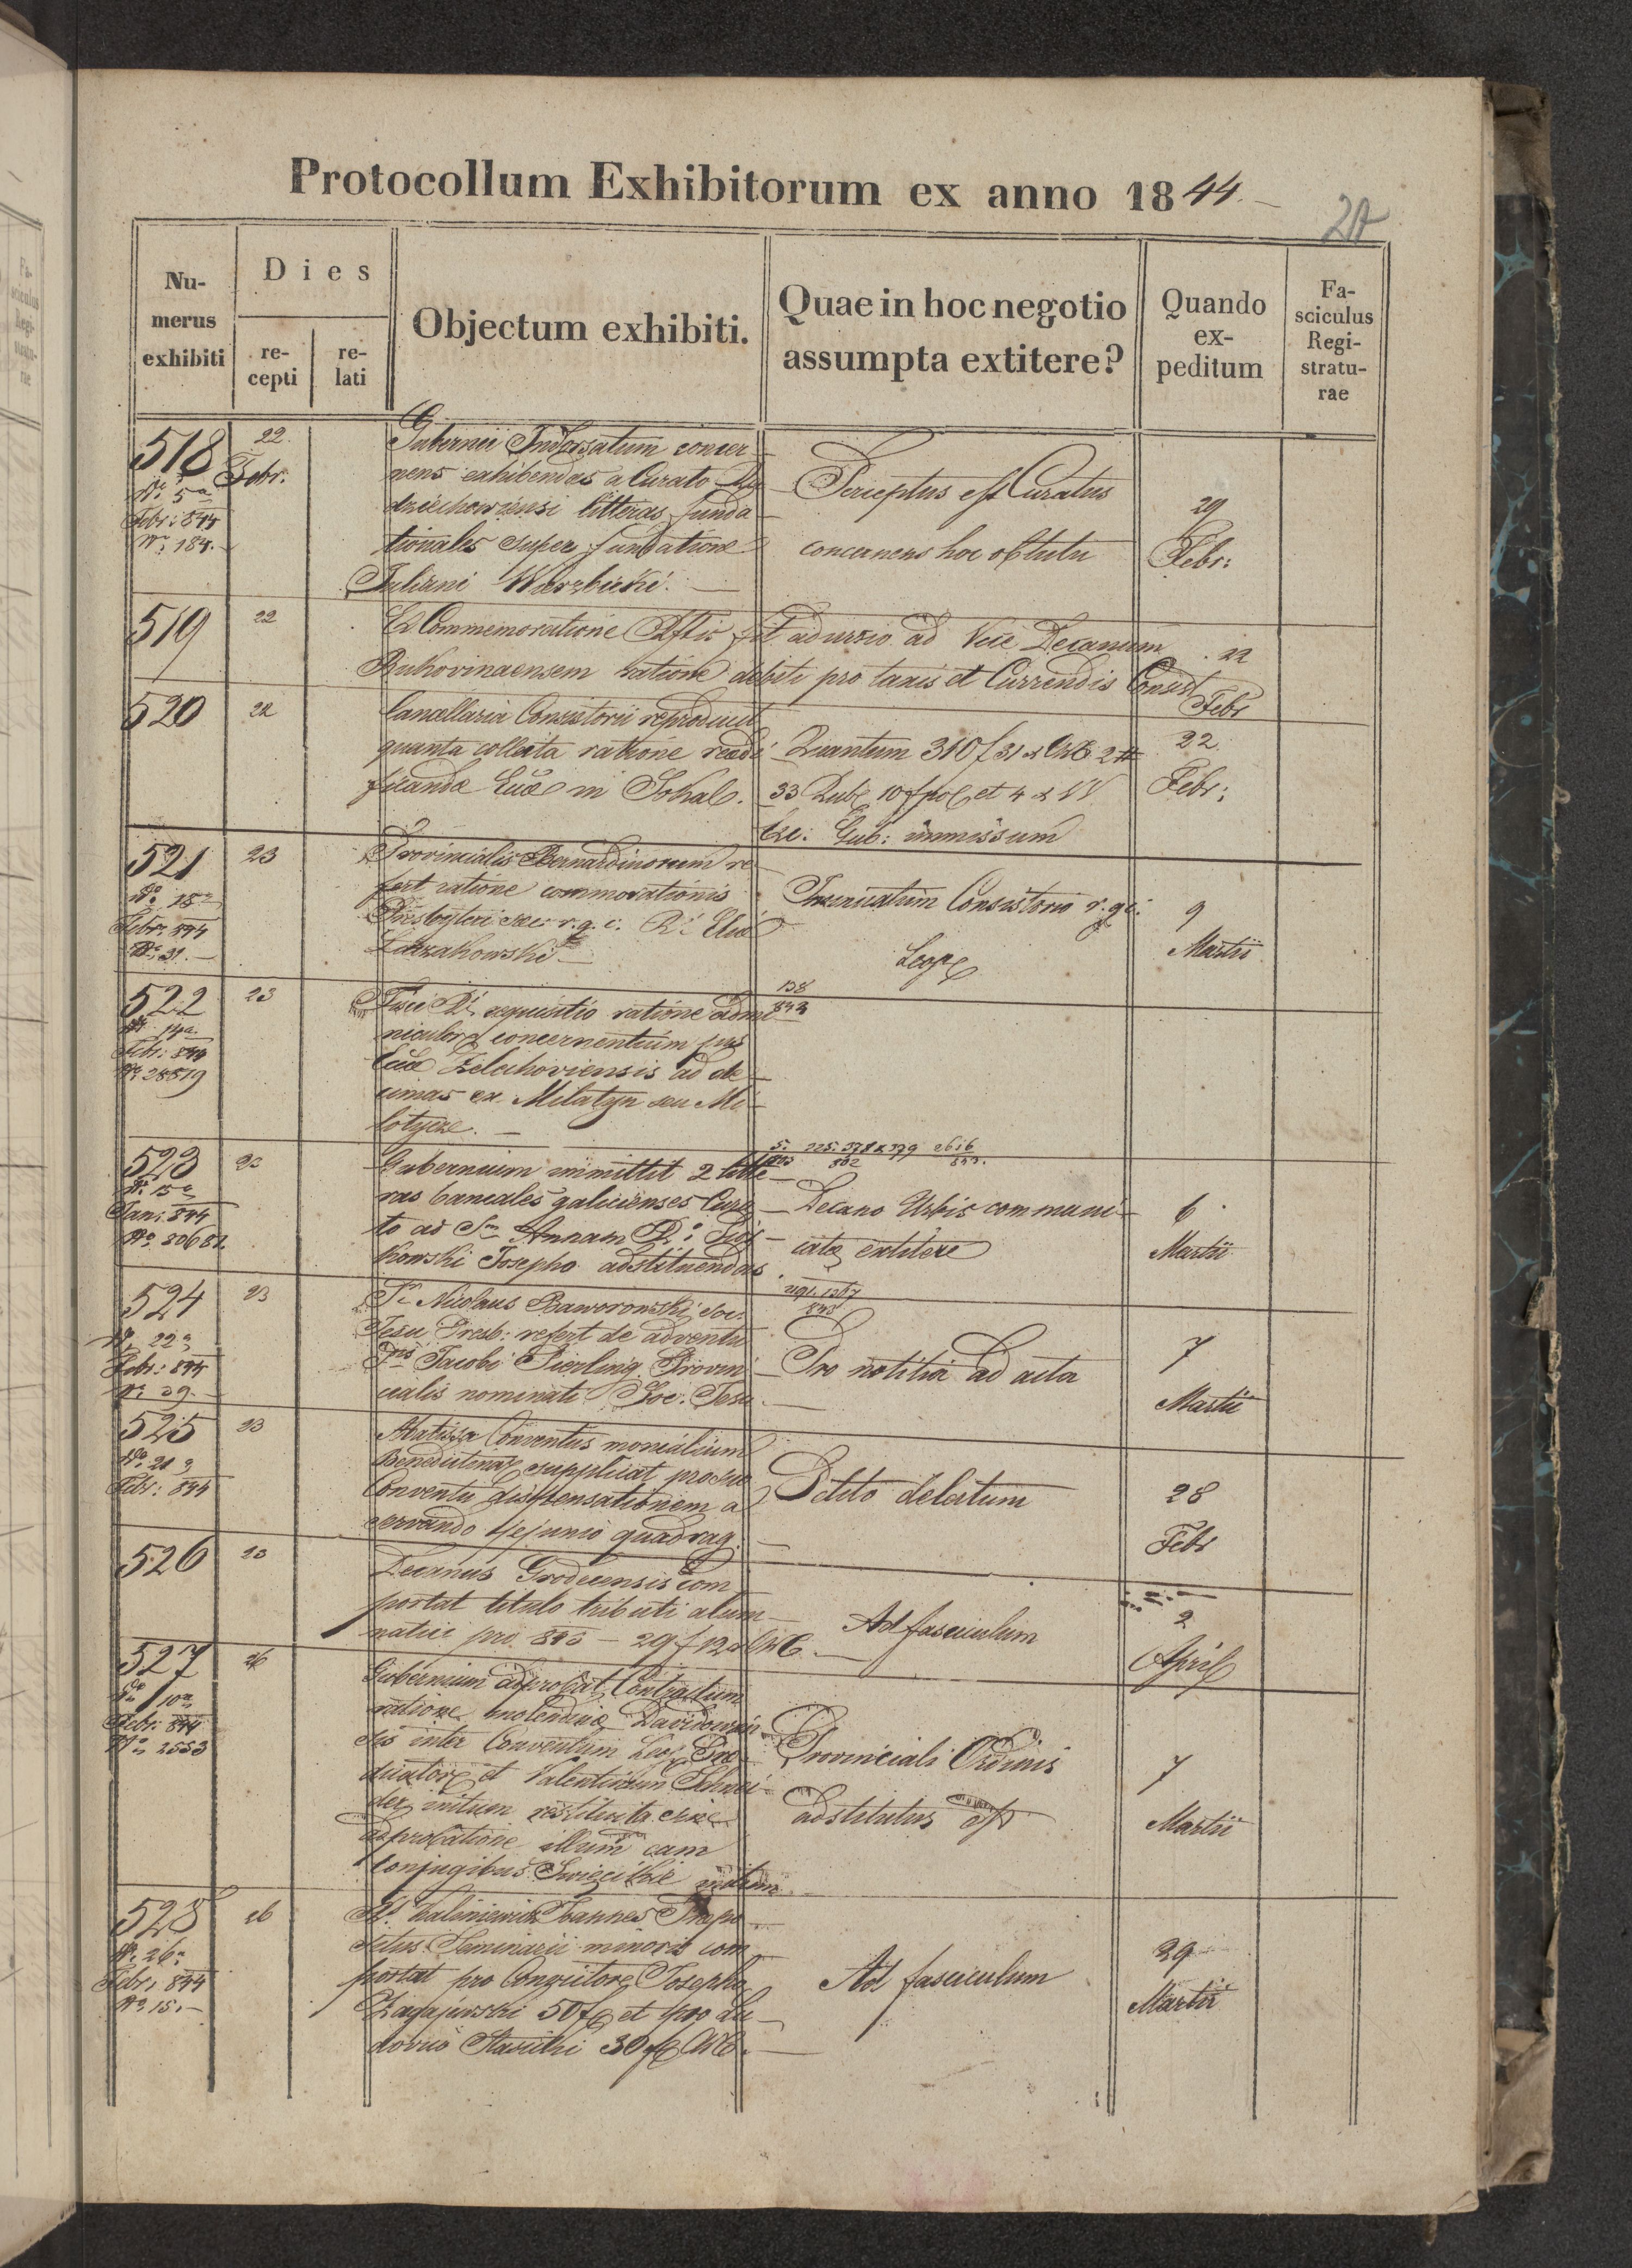 Protocollum Exhibitorum ex anno 1844.
Numerus exhibiti
Dies
recepti
relati
Objectum exhibiti.
Quae in hoc negotio
assumpta extitere?
Quando
ex-
peditum
Fa-
sciculus
Regi-
stratu-
rae
518
22.
Febr.
Nr. 5a
Febr: 844
Nr. 184.
Gubernii Indorsatum concer-
nens exhibendas a Curato
litteras funda-
tionales super fundatione
Juliani Wierzbicki.
Perceptus est Curatus
concernens hoc obtutu
29
Febr:
519
22
Ex Commemoratione fit adursio ad Vice Decanum
Bukovinaensem ratione debiti pro taxis et Currendis Consist
22
Febr
520
22
Cancellaria Consistorii reproducit
quanta collecta ratione reædi-
ficandæ Eccæ in Sokal.
Quantum 310 f 31 x 2 #
33 Rub: 10 f pol et 4 x W
Exc: Gub: immissum
22
Febr:
521
23
Nr. 18a
Febr: 844
Nr. 31.
Provincialis Bernardinorum re-
fert ratione commorationis
Presbyteri r. g. c.
Intimatum Consistorio r. g. c.
Leop
9
Martii
522
23
Nr. 14a
Febr: 844
Nr. 28519
138
843
Fisci R. requisitio ratione admi-
niculor concernentium jus
Eccæ Zelechoviensis ad de-
cimas ex Milatyn seu Mi-
lotycze.
523
23
Nr. 15a
Jan: 844
Nr. 80682
225. 378 & 379
Gubernium immittit 2 litte-
ras camerales galicienses Cura-
to ad Sm Annam
kowski Josepho adstituendas
Decano Urbis communi-
catæ extitere
6
Martii
524
23
Nr. 22a
Febr: 844
Nr. 29.
843
Pr Nicolaus Baworowski Soc.
Jesu Presb: refert de adventu
Pris Jacobi Pierling Provin-
cialis nominati Soc. Jesu.
Pro notitia ad acta
7
Martii
525
23
Nr. 21a
Febr: 844
Abatissa Conventus monialium
Benedictinar supplicat pro suo
Conventu dispensationem a
servando jejunio quadrag.
Petito delatum
28
Febr
526
23
Decanus Grodecensis com-
portat titulo tributi alum-
natici pro 843 – 29 f 12 x
Ad fasciculum
2
April
527
26
Nr. 10a
Febr: 844
Nr. 2553
Gubernium adprobat Contractum
ratione molendinæ Davidovien-
sis inter Conventum Leop Præ-
dicator et Valentinum Schnei-
der initum restituta sine
adprobatione illum cum
Conjugibus Swięcikie initum.
Provinciali Ordinis
adstitutus est
7
Martii
528
26
Nr. 26a
Febr: 844
Nr. 15.
Rs. Kaliniewicz Joannes Præpo-
situs Seminarii minoris com-
portat pro Josepho
Zagajewski 50 f et pro Lu-
dovico Stasicki 30 f
Ad fasciculum
29
Martii